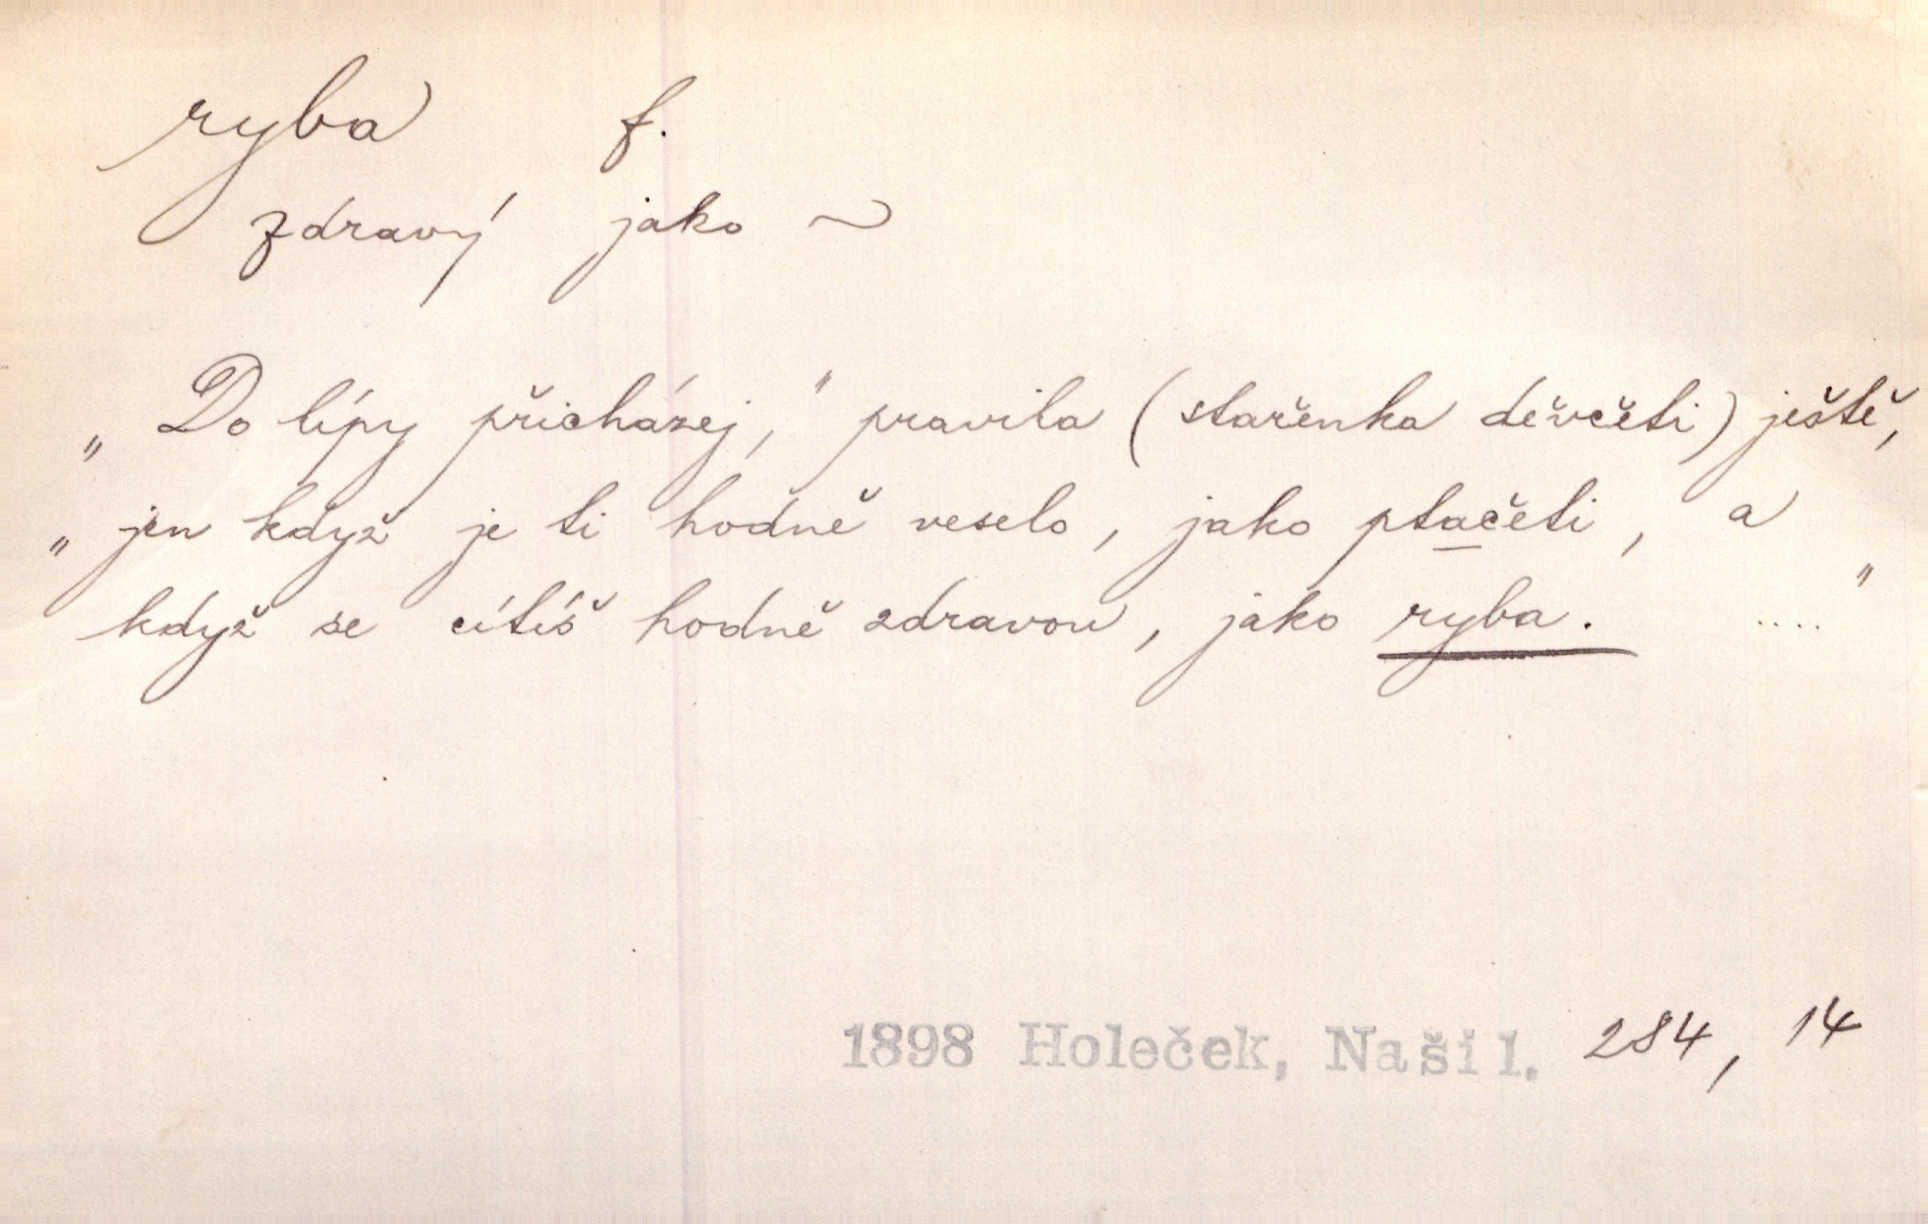 ryba f.
zdravý jako ~
„Do lípy přicházej,“ pravila (stařenka děvčeti) ještě,
„jen když je ti hodně veselo, jako ptačeti, a
když se cítíš hodně zdravou, jako ryba. ....“
1898 Holeček, Naši 1. 284, 14